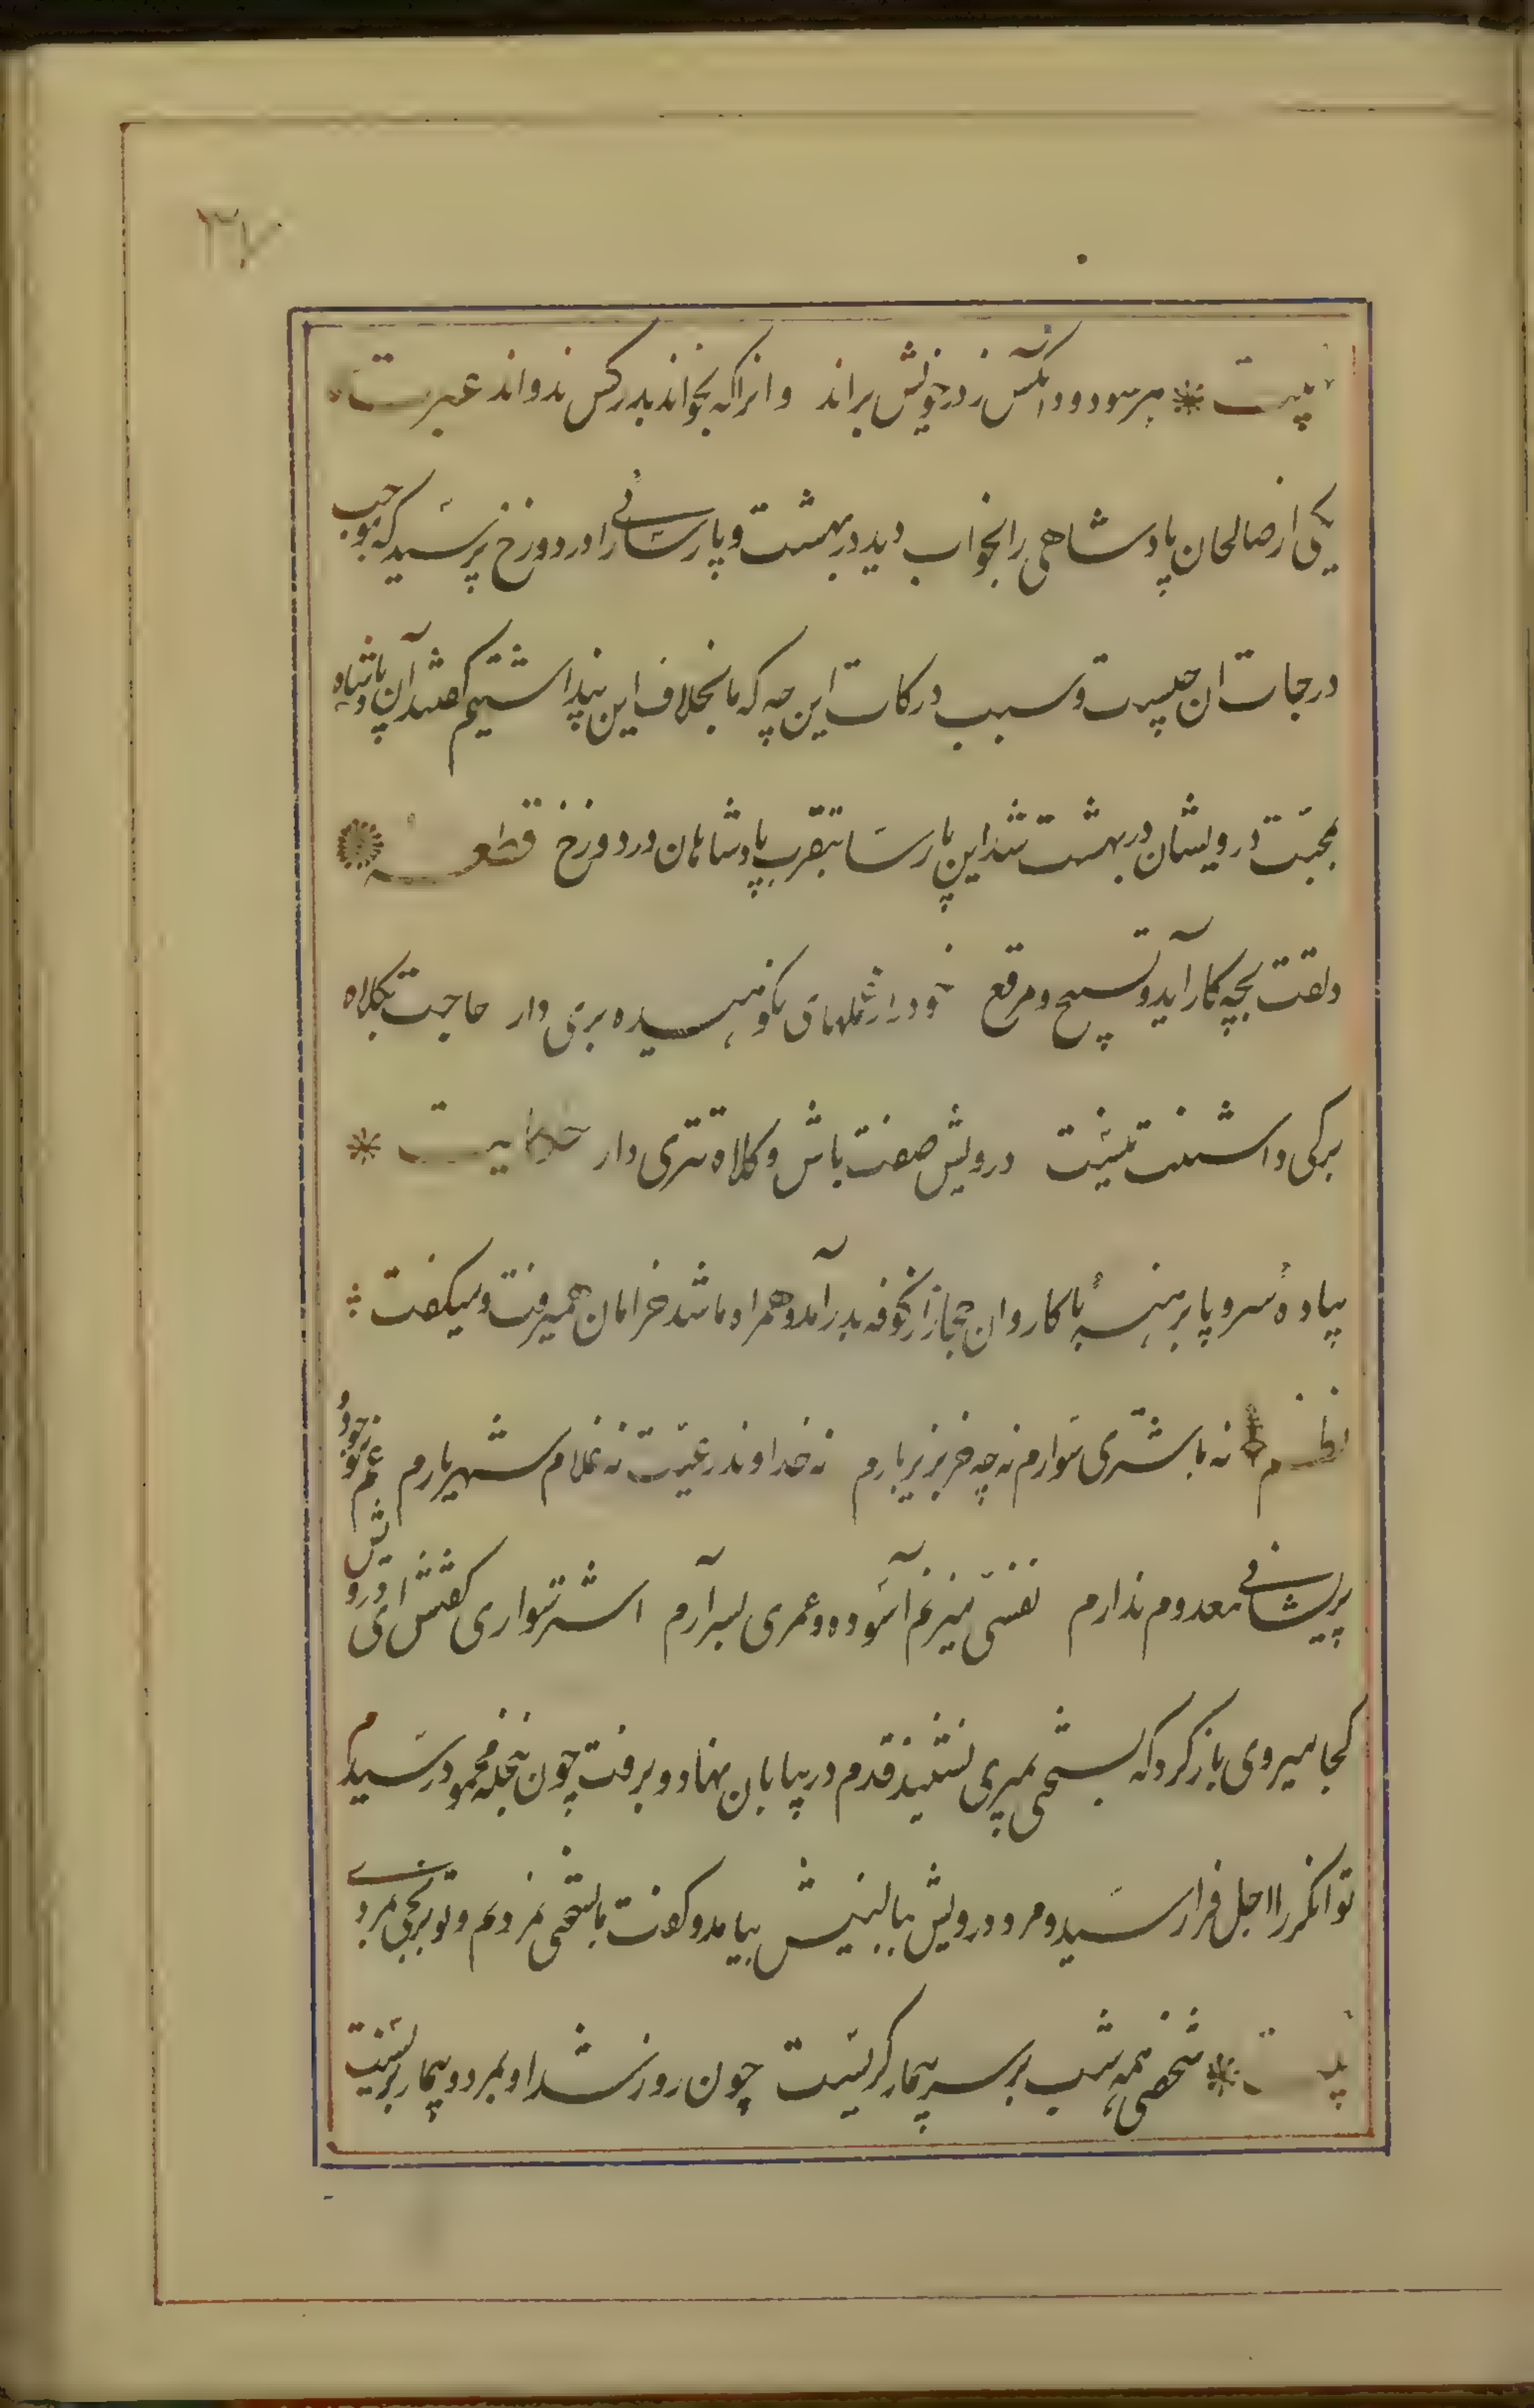 ۳۷
بیت * هرسو دود آنکس ز در خویش براند وانراکه بخواند بدر کس ندواند عبرت
یکی از صالحان پادشاهی را بخواب دید در بهشت و پارسائی را در دوزخ پرسید که موجب
درجات ان چیست و سبب درکات این چه که ما بخلاف این پنداشتیم گفتند آن پادشاه
بمحبّت درویشان در بهشت شد این پارسا بتقرب پادشاهان در دوزخ قطعه
دلقت بچه کار آید و تسبیح و مرقع خود را ز عملهای نکوهیده بری دار حاجت بکلاه
برکی داشتنت نیست درویش صفت باش و کلاه تتری دار حکایت *
پیادهٔ سر و پا برهنه با کاروان حجاز از کوفه بدر آمد و همراه ما شد خرامان همیرفت و میگفت
نظم نه باشتری سوارم نه چه خر بزیر بارم نه خداوند رعیّت نه غلام شهریارم غم موجود و
پریشانی معدوم ندارم نفسی میزنم آسوده و عمری بسر آرم اشتر سواری گفتش ای درویش
کجا میروی بازگرد که بسختی بمیری نشنید قدم در بیابان نهاد و برفت چون بنخله محمود رسیدم
توانگر را اجل فرا رسید و مرد درویش ببالینش بیامد و گفت ما بسختی نمردیم و تو بر بختی بمردی
بیت * شخصی همه شب بر سر بیمار گریست چون روز شد او بمرد و بیمار بزیست